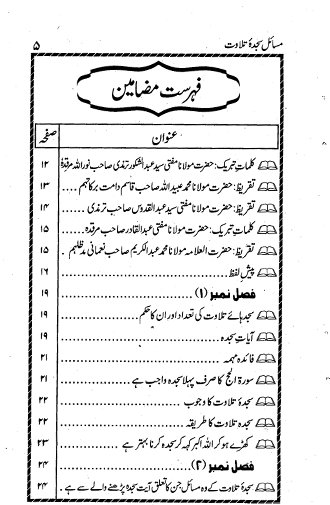 مسائل سجدۂ تلاوت ۵
فہرست مضامین
عنوان صفحہ
کلماتِ تبریک: حضرت مولانا مفتی سید عبدالشکور ترمذی صاحب نور اللہ مرقدہ ۱۲
تقریظ: حضرت مولانا محمد عبید اللہ صاحب قاسم دامت برکاتہم ..... ۱۳
تقریظ: حضرت مولانا مفتی سید عبدالقدوس صاحب ترمذی ..... ۱۴
کلماتِ تبریک: حضرت مولانا مفتی عبدالقادر صاحب مرقدہ ..... ۱۵
تقریظ: حضرت العلامہ مولانا محمد عبدالکریم صاحب نعمانی مدظلہم ۱۵
پیش لفظ ..... ۱۶
فصل نمبر (۱) ..... ۱۹
سجدہائے تلاوت کی تعداد اور ان کا حکم ..... ۱۹
آیاتِ سجدہ ..... ۱۹
فائدہ مہمہ ..... ۲۱
سورۃ الحج کا صرف پہلا سجدہ واجب ہے ..... ۲۱
سجدۂ تلاوت کا وجوب ..... ۲۲
سجدہ تلاوت کا طریقہ ..... ۲۲
کھڑے ہو کر اللہ اکبر کہہ کر سجدہ کرنا بہتر ہے ..... ۲۳
فصل نمبر (۲) ..... ۲۴
سجدۂ تلاوت کے وہ مسائل جن کا تعلق آیت سجدہ پڑھنے والے سے ہے . ۲۴